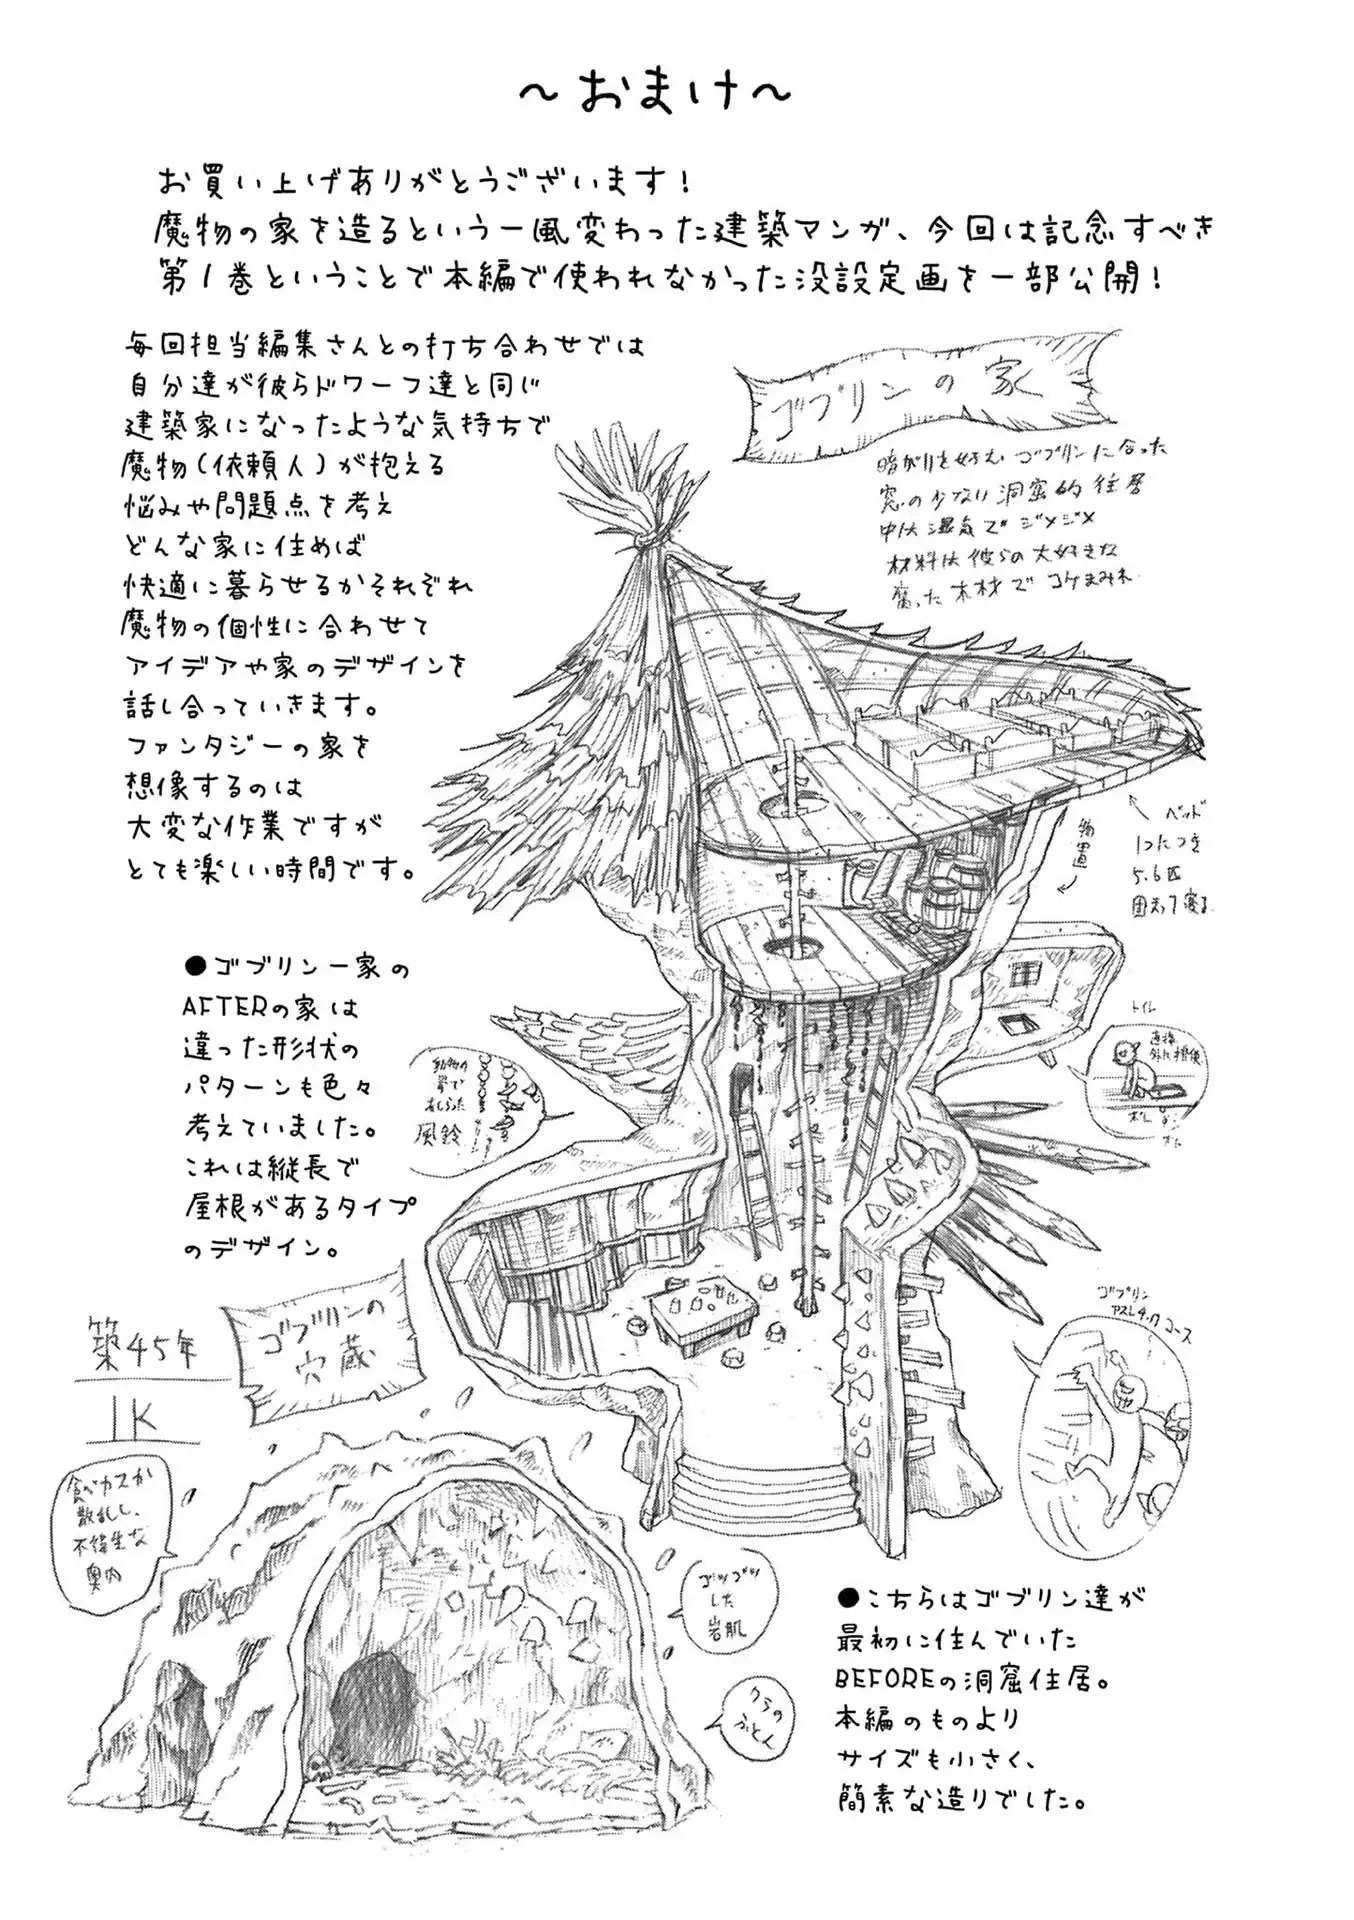 ～おまけ～
お買い上げありがとうございます!
魔物の家を造るという一風変わった建築マンガ、今回は記念すべき
第1巻ということで本編で使われなかった没設定画を一部公開!
毎回担当編集さんとの打ち合わせでは
自分達が彼らドワーフ達と同じ
建築家になったような気持ちで
魔物(依頼人)が抱える
悩みや問題点を考え
どんな家に住めば
快適に暮らせるかそれぞれ
魔物の個性に合わせて
アイデアや家のデザインを
話し合っていきます。
ファンタジーの家を
想像するのは
大変な作業ですが
とても楽しい時間です。
ゴブリンの家
暗がりを好む ゴブリンに合った
窓の少ない洞窟的住居
中は湿気でジメジメ
材料は彼らの大好きな
腐った木材でコケまみれ
ベッド
1つにつき
5.6匹
固まって寝る
物置
トイレ
直接
外に排便
●ゴブリン一家の
AFTERの家は
違った形状の
パターンも色々
考えていました。
これは縦長で
屋根があるタイプ
のデザイン。
動物の
骨で
あしらった
風鈴
ゴブリン
アスレチックコース
築45年
1K
ゴブリンの
穴蔵
食べカスが
散乱し、
不衛生な
奥内
ゴツゴツ
した
岩肌
ワラの
ふとん
●こちらはゴブリン達が
最初に住んでいた
BEFOREの洞窟住居。
本編のものより
サイズも小さく、
簡素な造りでした。